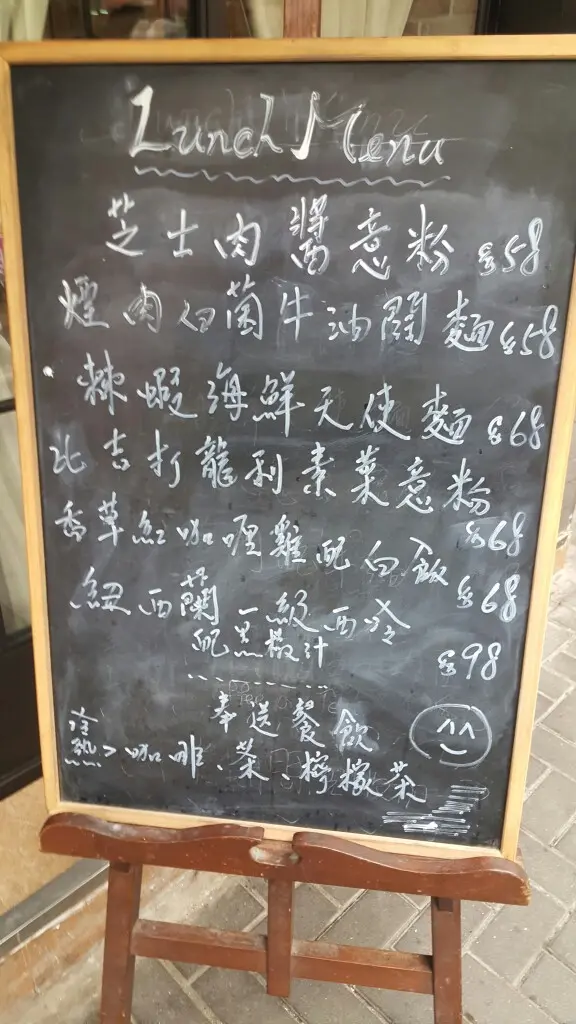 Lunch Menu
芝士肉醬意粉 $58
煙肉白菌牛油闊麵 $58
辣蝦海鮮天使麵 $68
比吉打龍利素菜意粉 $68
香草紅咖喱雞配白飯 $68
紐西蘭一級西冷
配黑椒汁 $98
奉送餐飲
冷
熱>咖啡、茶、檸檬茶